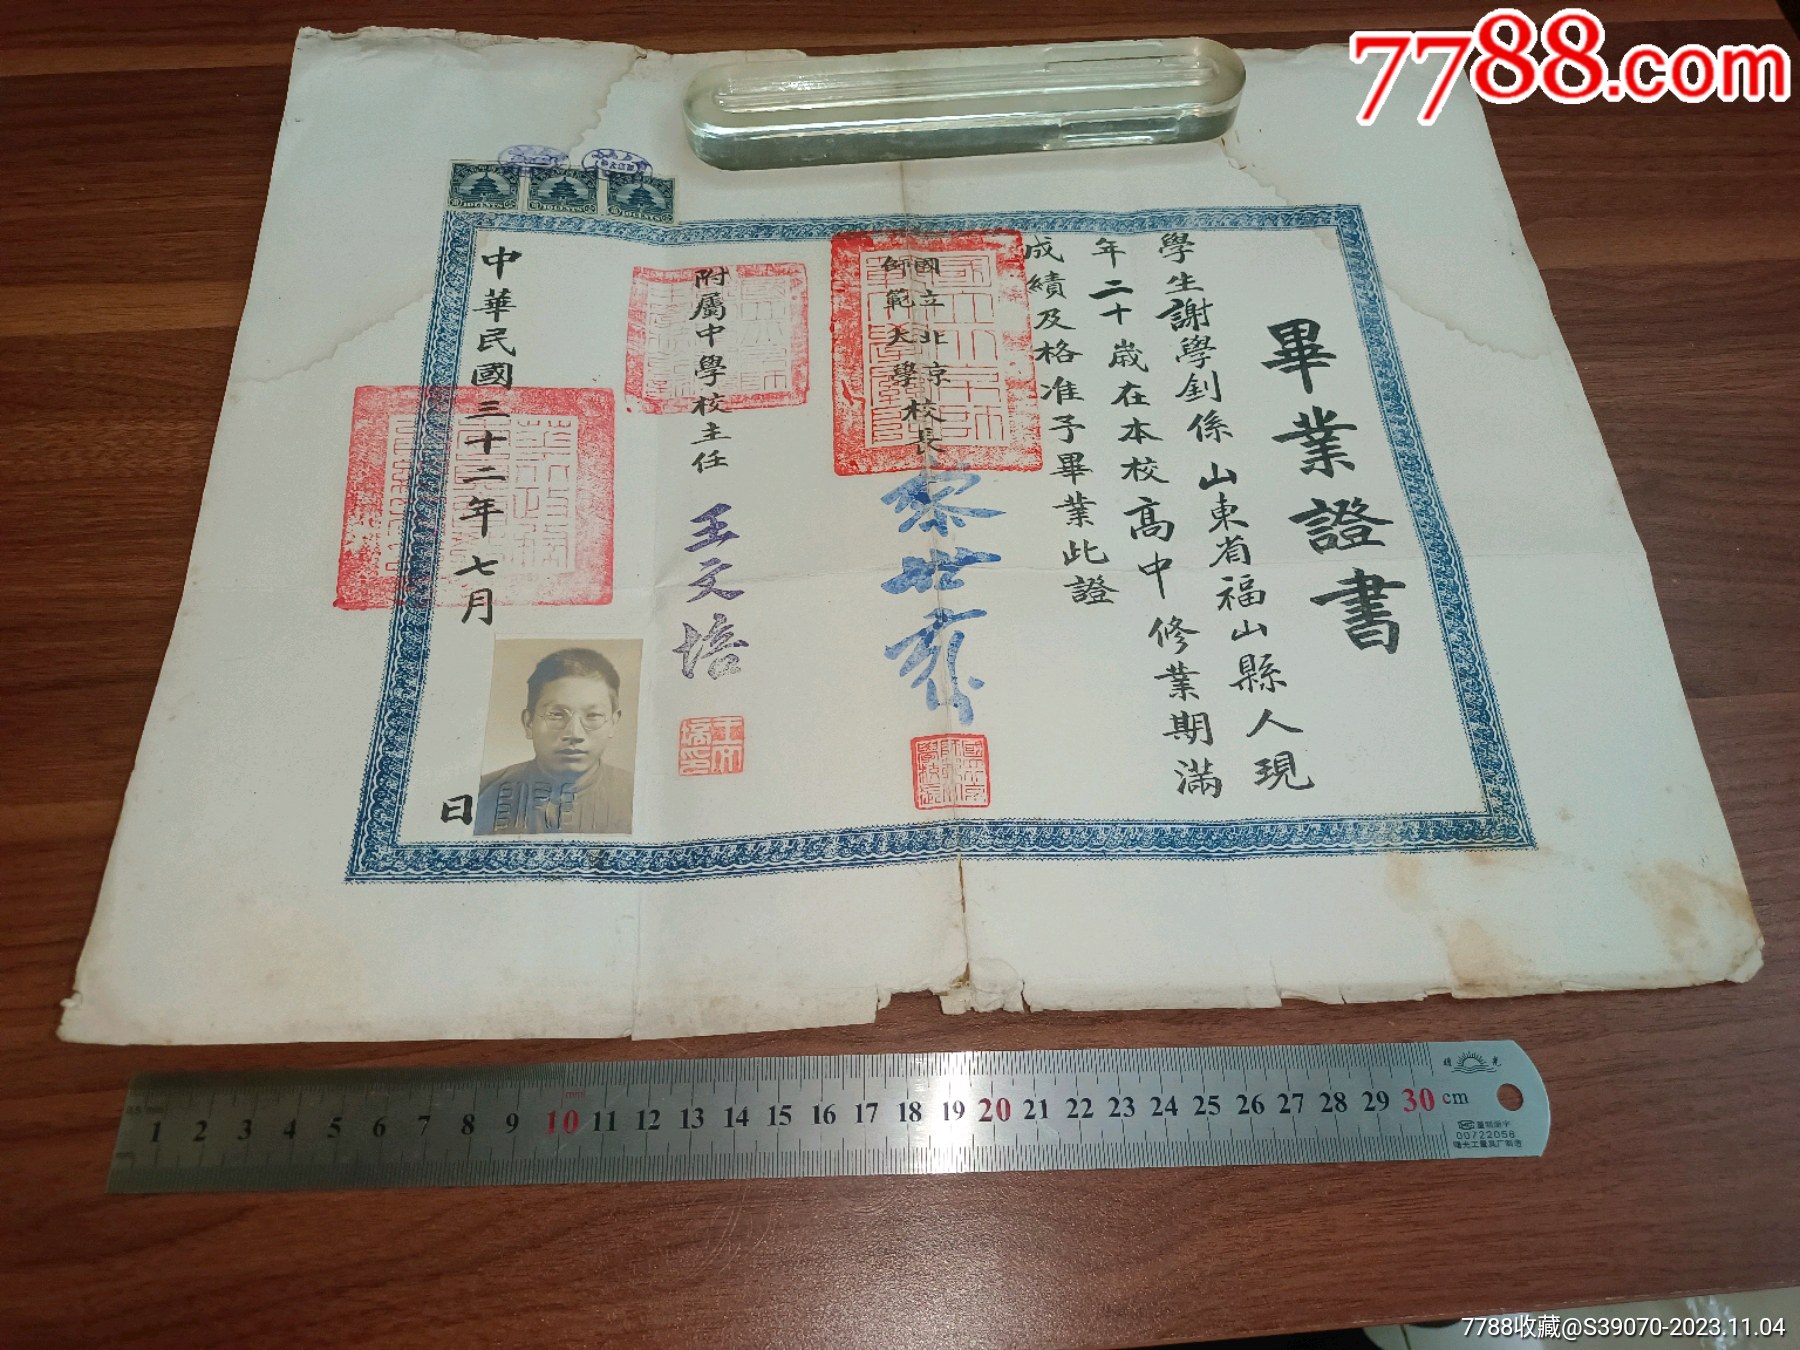 7788.com
畢業證書
學生謝學釗係山東省福山縣人現
年二十歲在本校高中修業期滿
成績及格准予畢業此證
國立北京
師範大學
校長
黎世蘅
附屬中學校主任
王文培
中華民國三十二年七月
日
1 2 3 4 5 6 7 8 9 10 11 12 13 14 15 16 17 18 19 20 21 22 23 24 25 26 27 28 29 30 cm
00722058
7788收藏@S39070-2023.11.04